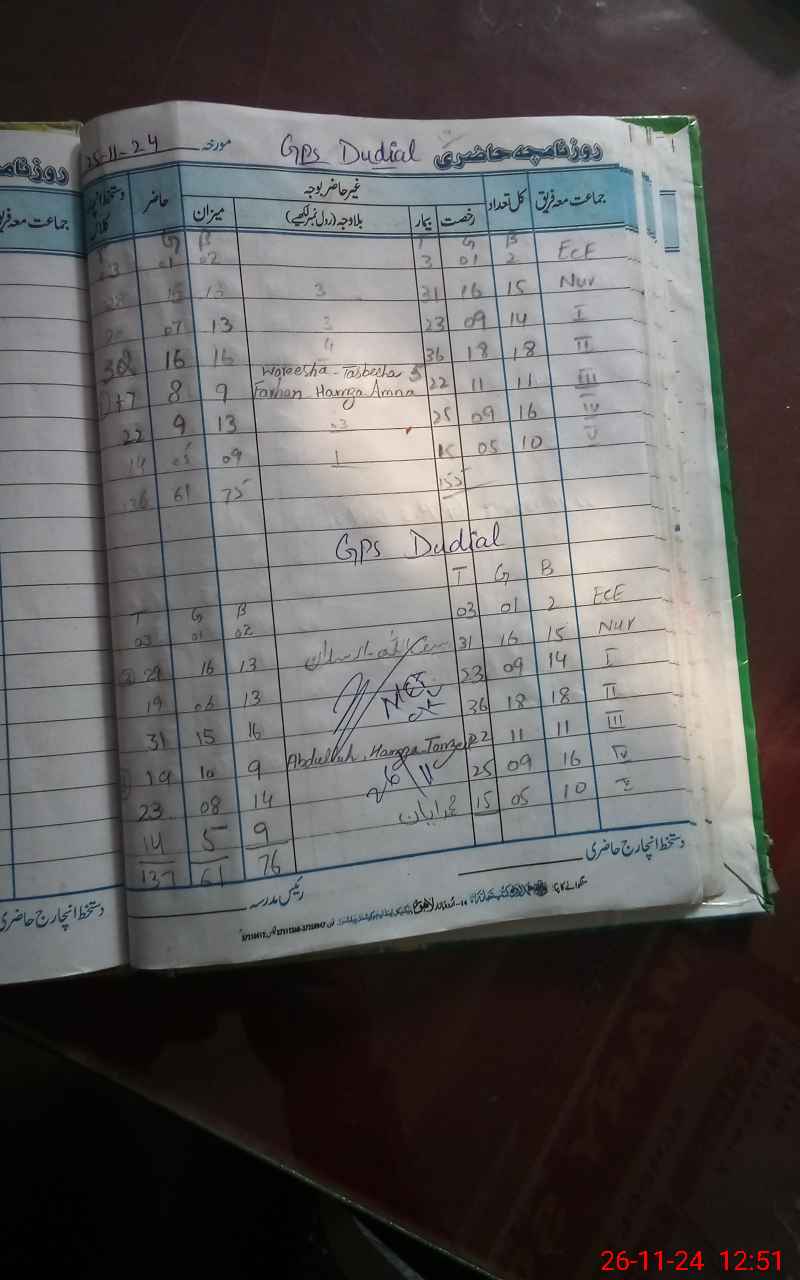 روزنامچہ حاضری GPS Dudial مورخہ 25-11-24
جماعت معہ فریق کل تعداد غیر حاضر بوجہ حاضر دستخط انچارج
رخصت بیمار بلاوجہ (رول نمبر لکھیے) میزان
G B T G B
23 01 02 3 01 2 ECE
15 13 3 31 16 15 Nur
20 07 13 3 23 09 14 I
32 16 16 4 36 18 18 II
17 8 9 Wareesha - Tasbeeha 5 22 11 11 III
Farhan Hamza Amna
22 9 13 03 25 09 16 IV
14 05 09 1 15 05 10 V
136 61 75 155
GPS Dudial
T G B T G B
03 01 02 03 01 2 ECE
29 16 13 31 16 15 Nur
19 06 13 23 09 14 I
31 15 16 36 18 18 II
19 10 9 Abdullah, Hamza 22 11 11 III
23 08 14 26/11 25 09 16 IV
14 5 9 15 05 10 V
137 61 76
دستخط انچارج حاضری
رئیس مدرسہ
روزنامچہ
جماعت معہ فریق
دستخط انچارج حاضری
26-11-24 12:51